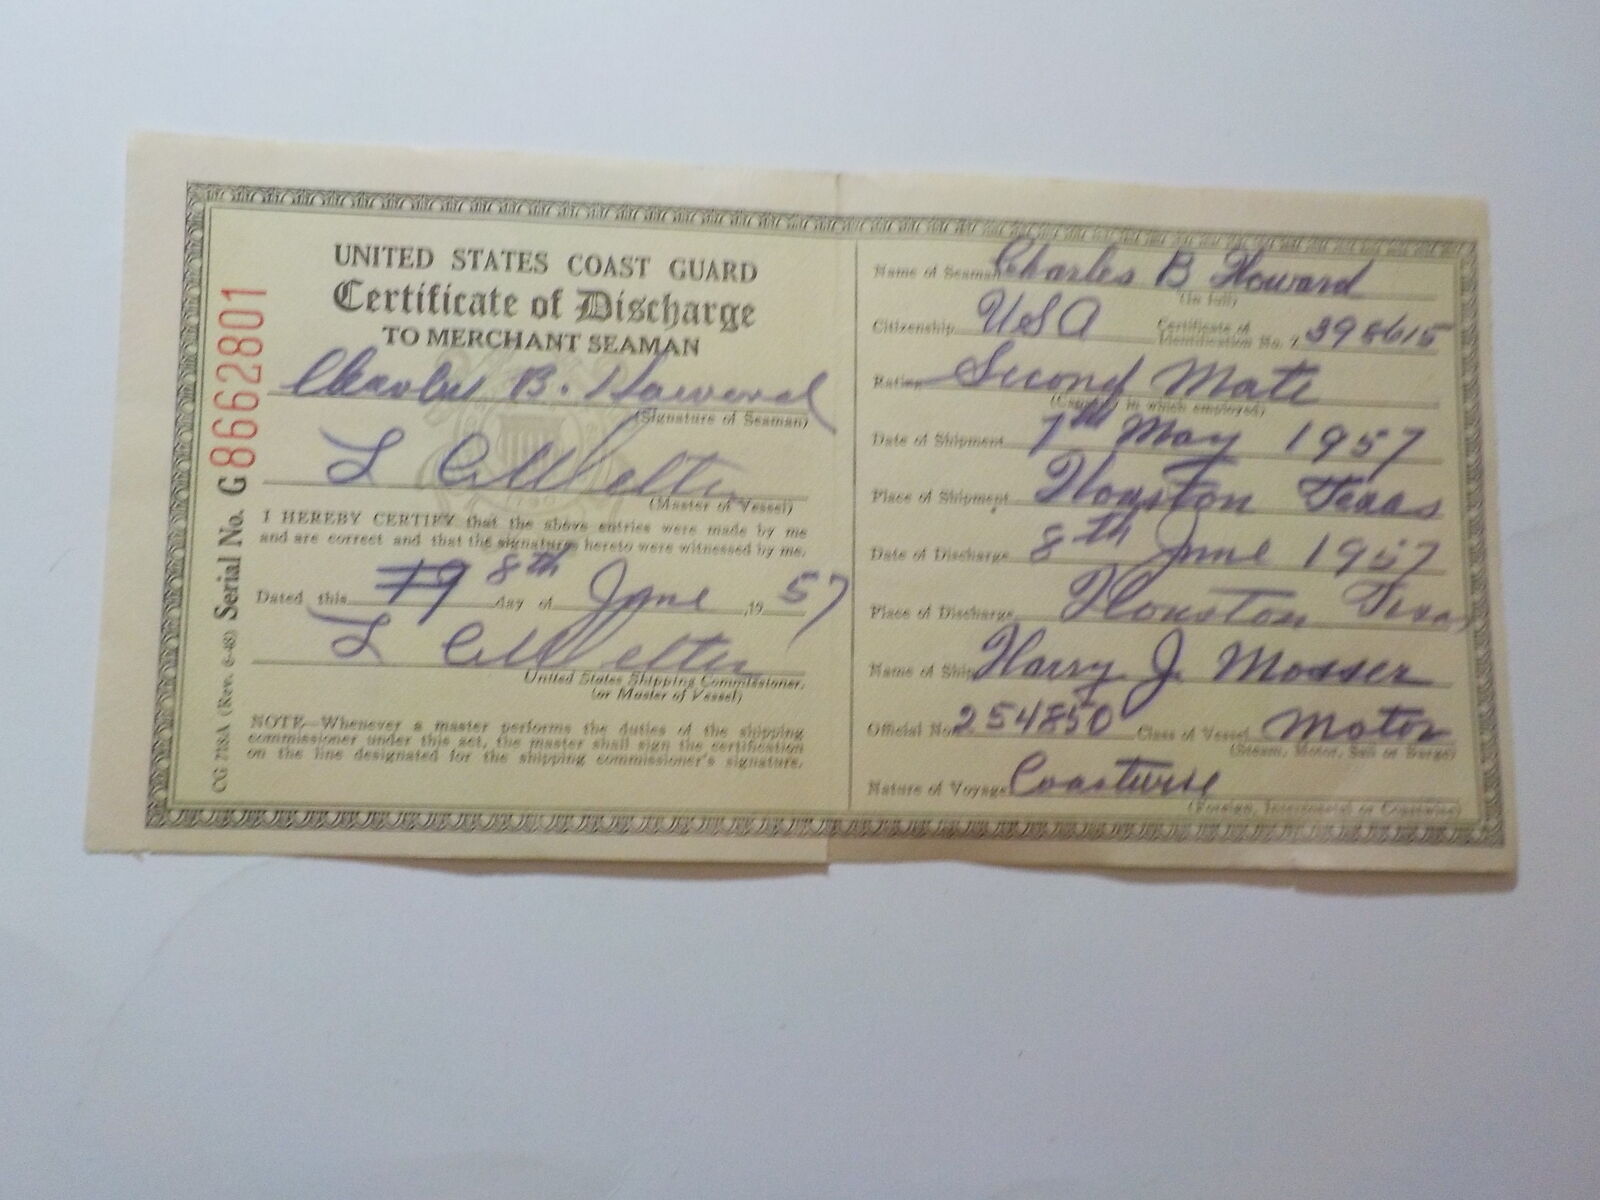 UNITED STATES COAST GUARD
Certificate of Discharge
TO MERCHANT SEAMAN
Charles B. Howard
(Signature of Seaman)
L
(Master of Vessel)
I HEREBY CERTIFY that the above entries were made by me
and are correct and that the signatures hereto were witnessed by me.
Dated this 8th day of June, 19 57
L
United States Shipping Commissioner.
(or Master of Vessel)
NOTE—Whenever a master performs the duties of the shipping
commissioner under this act, the master shall sign the certification
on the line designated for the shipping commissioner's signature.
CG 718A (Rev. 6-48) Serial No. G8662801
Name of Seaman Charles B Howard
(In full)
Citizenship USA Certificate of
Identification No. Z 398615
Rating Second Mate
(Capacity in which employed)
Date of Shipment 7th May 1957
Place of Shipment Houston Texas
Date of Discharge 8th June 1957
Place of Discharge Houston Texas
Name of Ship Harry J. Mosser
Official No. 254850 Class of Vessel Motor
(Steam, Motor, Sail or Barge)
Nature of Voyage Coastwise
(Foreign, Intercoastal or Coastwise)